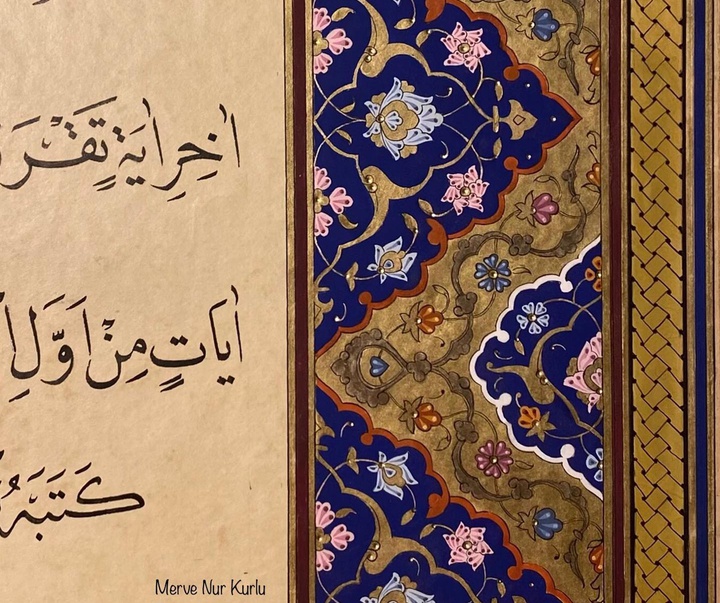 اٰخِرِ اٰيَةٍ تَقْرَ
اٰيَاتٍ مِنْ اَوَّلِ
كَتَبَهُ
Merve Nur Kurlu